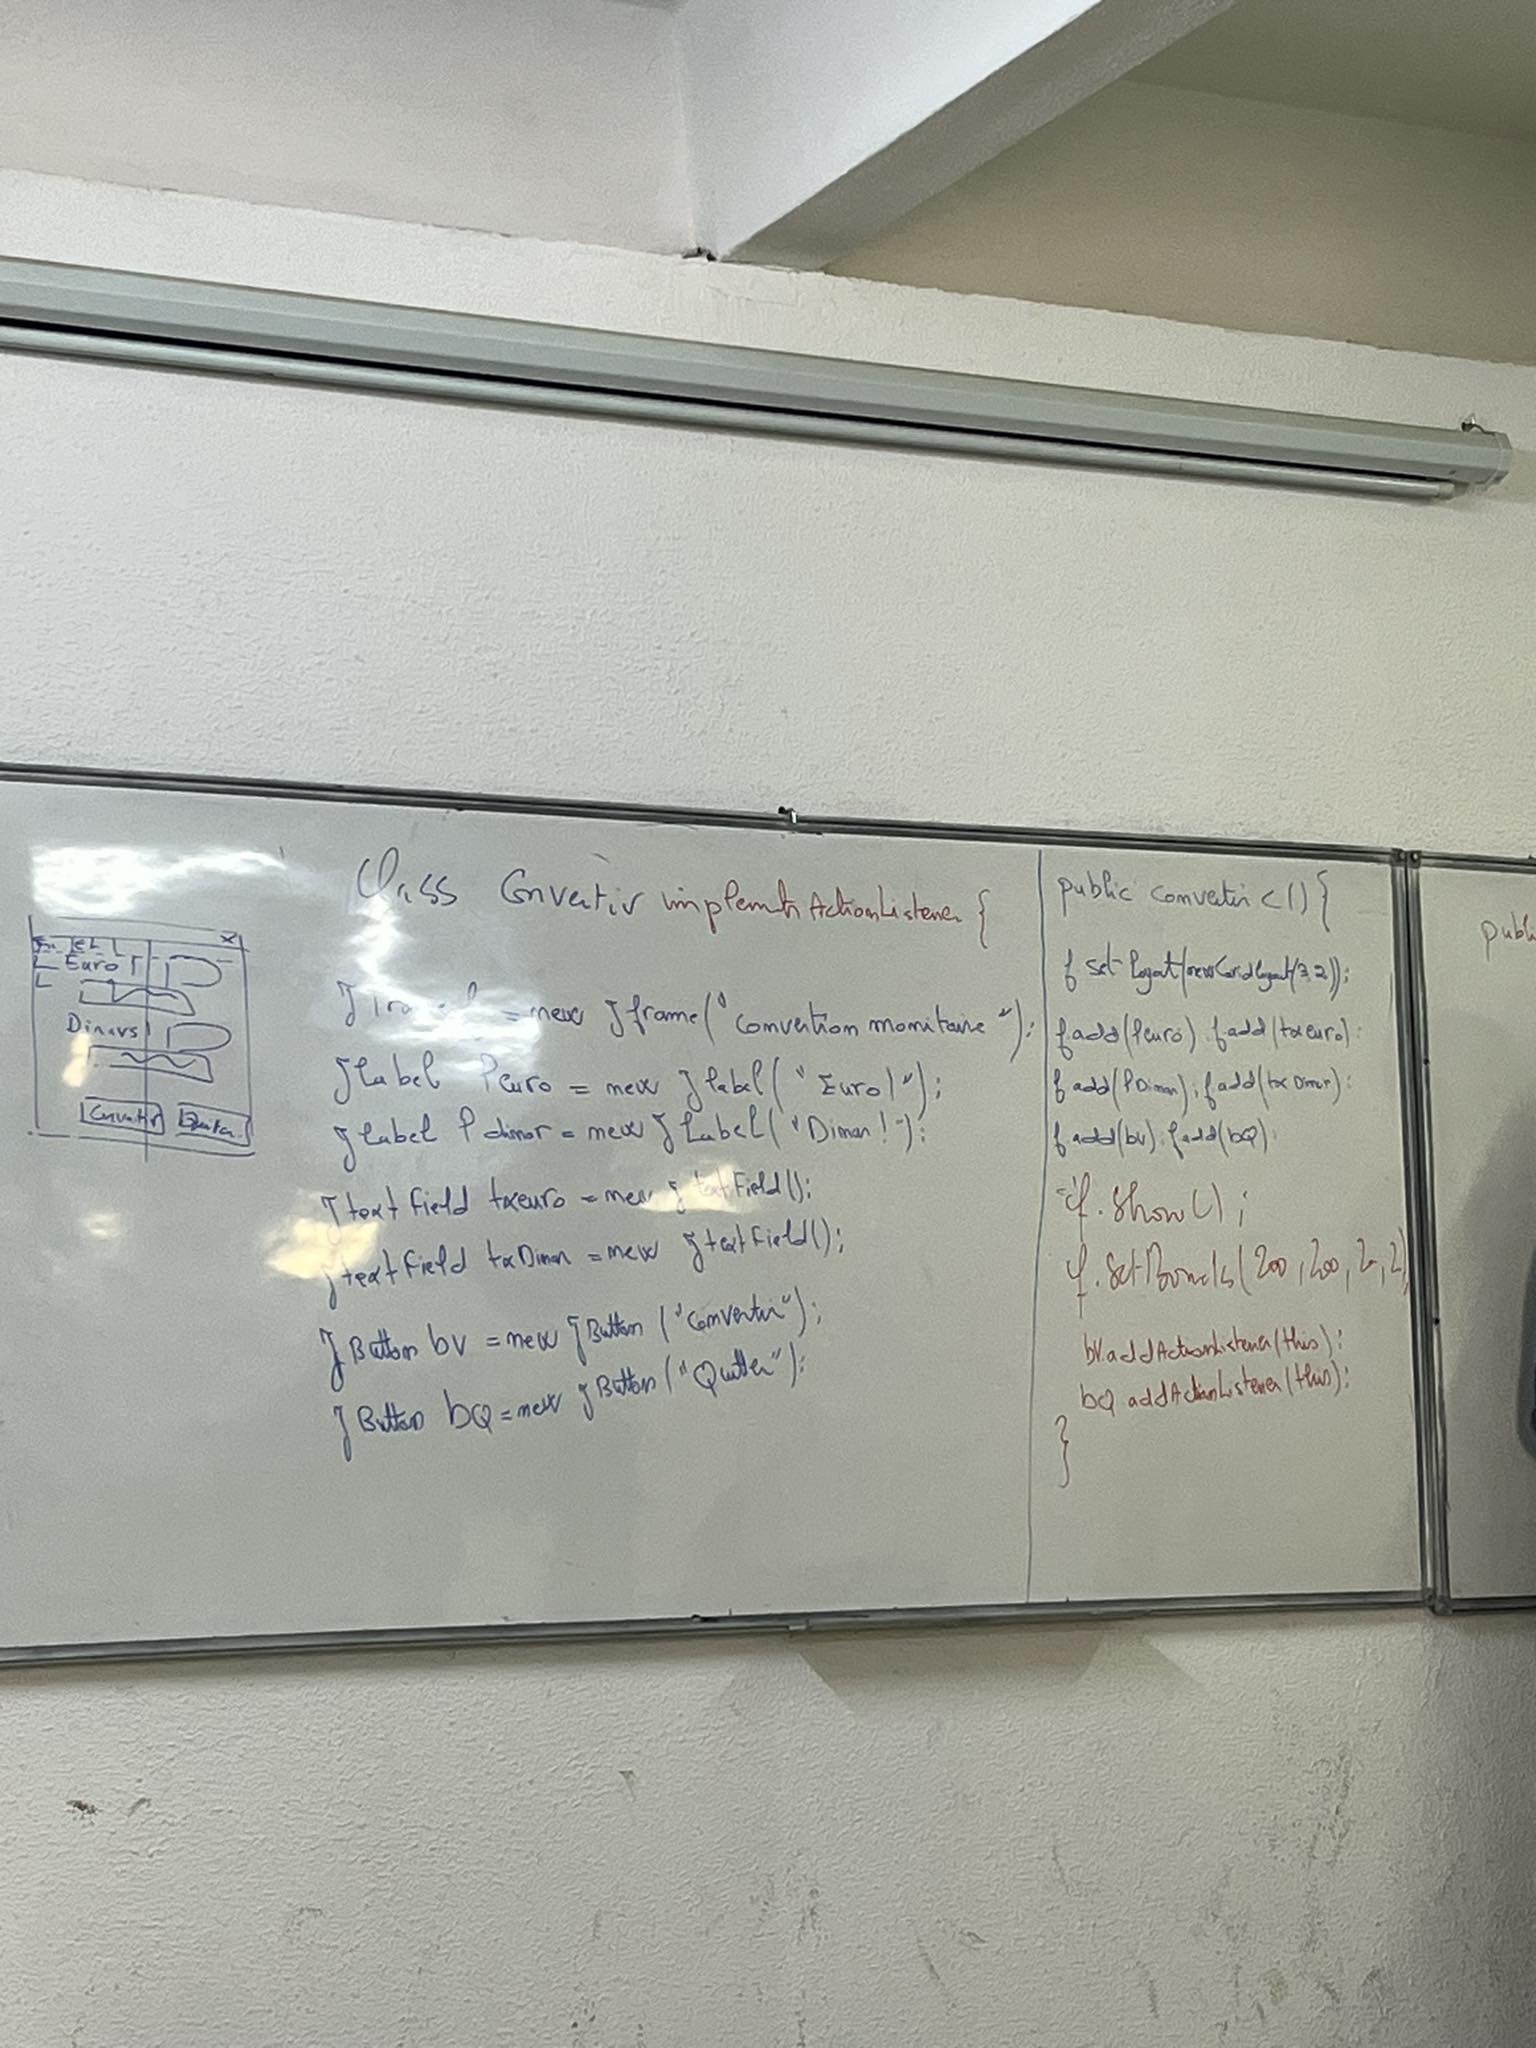 X
Euro!
Dinars!
Convertir Quitter
Class Convertir implements ActionListener {
= new Jframe("Convertion monitaire");
Jlabel leuro = new Jlabel("Euro!");
Jlabel ldinar = new JLabel("Dinar!");
Jtextfield txeuro = new JtextField();
Jtextfield txDinar = new JtextField();
JButton bv = new JButton("Convertir");
JButton bQ = new JButton("Quitter");
public convertir c() {
f set layout(new Gridlayout(3,2));
f.add(leuro); f.add(txeuro);
f add(lDinar); f add(txDinar);
f add(bv); f.add(bQ);
f.Show();
f.SetBounds(200, 200, 2
bv.addActionListener(this);
bQ addActionListener(this);
}